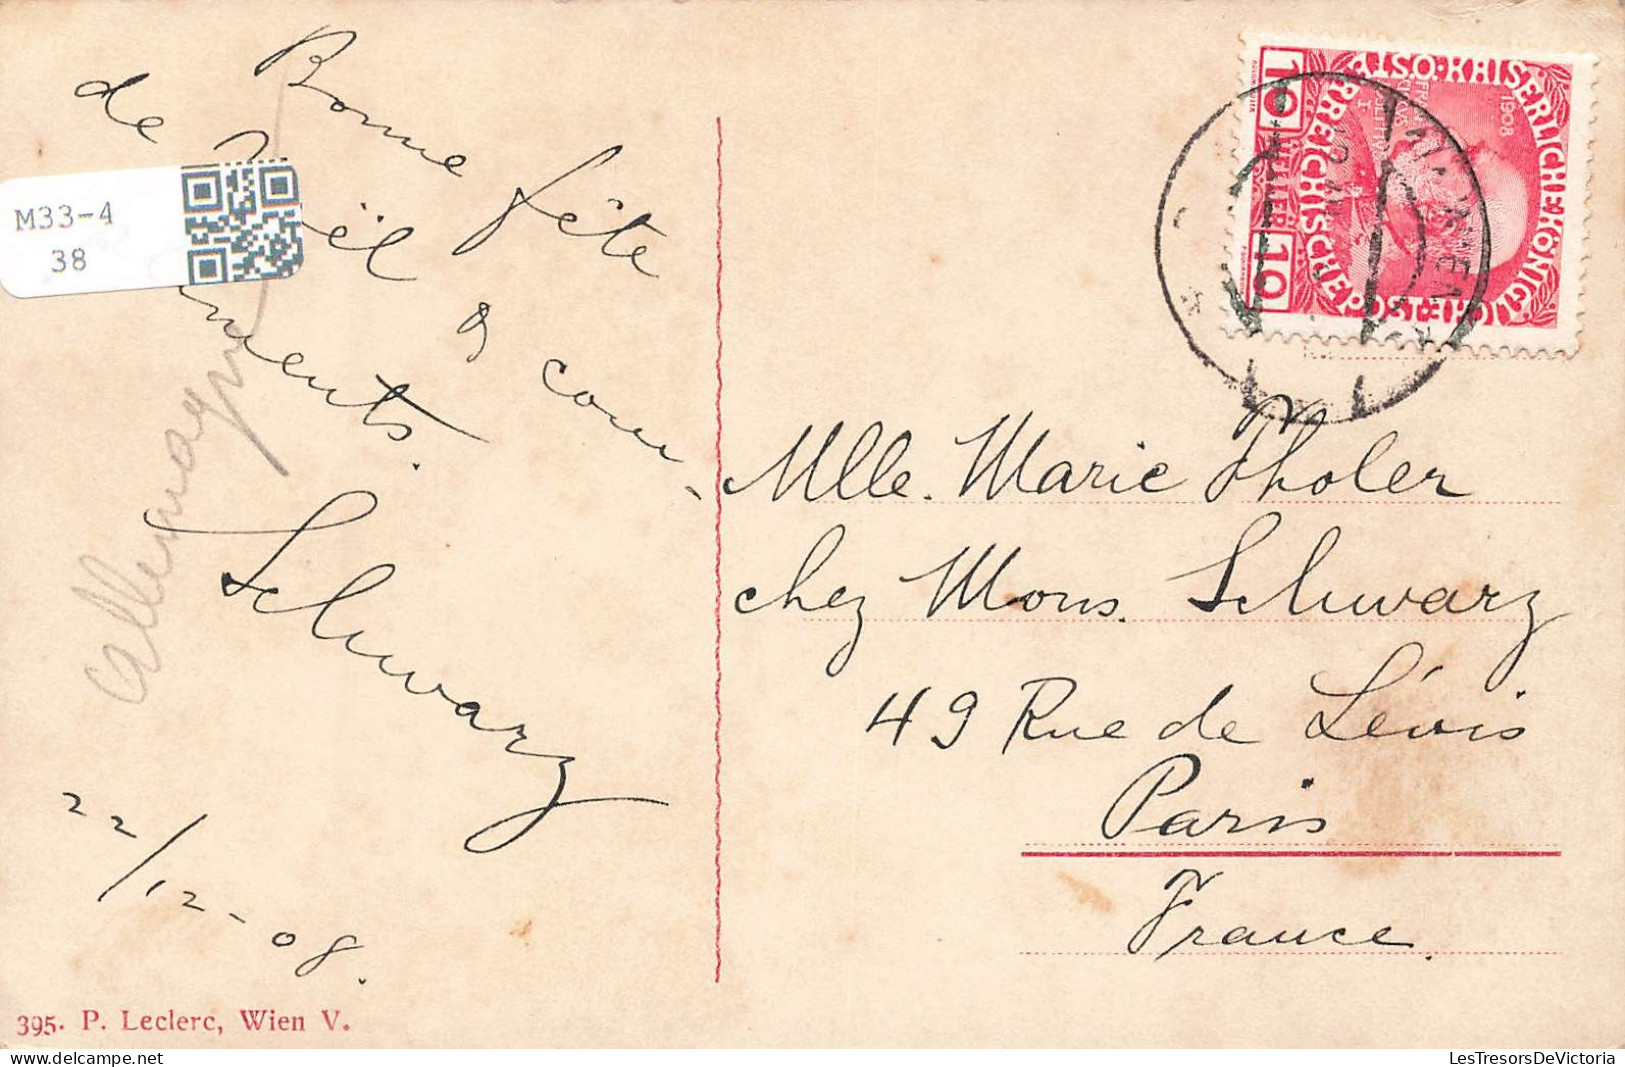 Bonne fête
de Noël & com-
ments.
Schwarz
22/12-08.
allemagne
M33-4
38
395. P. Leclerc, Wien V.
KAISERLICHE KÖNIGLICHE ÖSTERREICHISCHE POST
1908
10 HELLER 10
WIEN
Mlle. Marie Tholer
chez Mons. Schwarz
49 Rue de Lévis
Paris
France.
LesTresorsDeVictoria